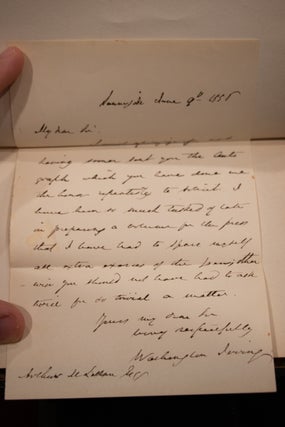 Sunnyside June 9th 185
My dear Sir.
having sooner sent you the auto
graph which you have done me
the honor repeatedly to solicit. I
have been so much tasked of late
in preparing a volume for the press
that I have had to spare myself
all extra exercise of the pen; other
-wise you should not have had to ask
twice for so trivial a matter.
Yours my dear Sir
very respectfully
Washington Irving
Arthur Esq